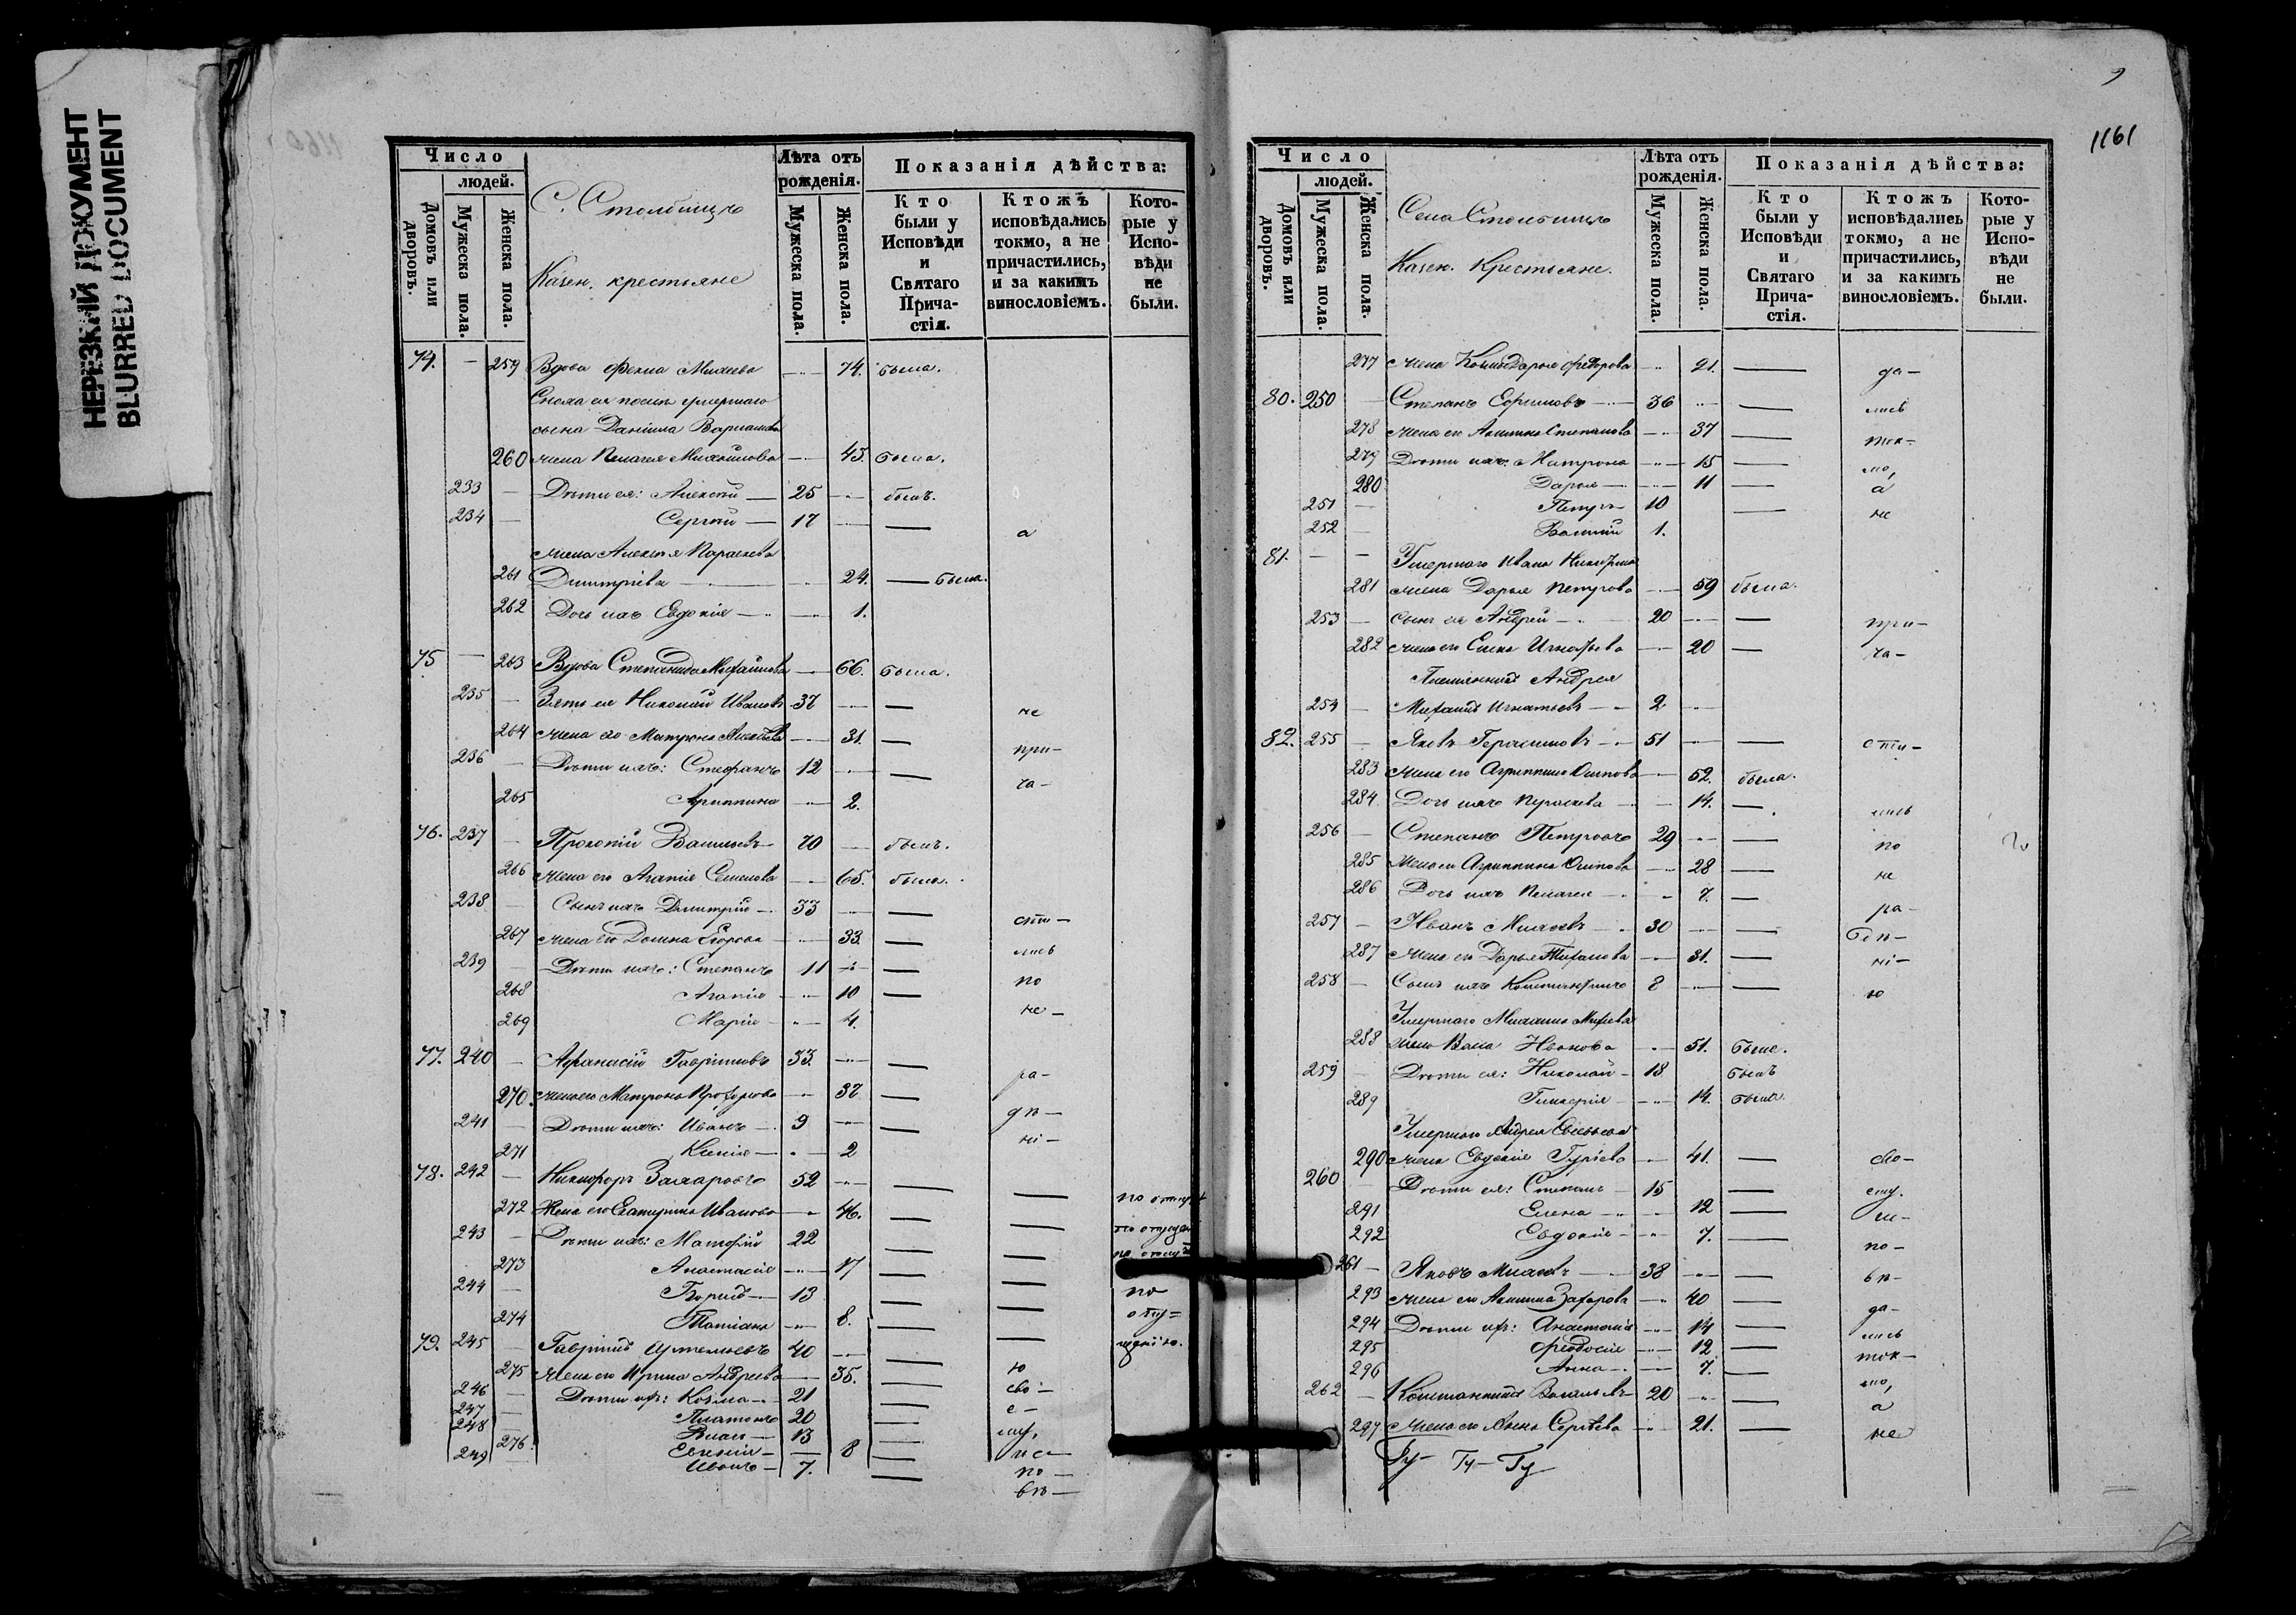 НЕРЕЗКИЙ ДОКУМЕНТ
BLURRED DOCUMENT
Число
людей.
Домовъ или дворовъ.
Мужеска пола.
Женска пола.
С. Столбищъ
Казен. крестьяне
Лѣта отъ рожденія.
Мужеска пола.
Женска пола.
Показанія дѣйства:
Кто были у Исповѣди и Святаго Прича-стія.
Ктожъ исповѣдались токмо, а не причастились, и за какимъ винословіемъ.
Кото-рые у Испо-вѣди не были.
74. — 259 Вдова Фекла Михеева — 74. была.
Сноха ея послѣ умершаго
сына Даніила
260 жена Пелагея Михайлова — 43. была.
233 — Дѣти ея: Алексѣй — 25 — былъ.
234 — Сергѣй — 17 — — а
жена Алексѣя Параскева
261 Димитріева — 24. — была.
262 Дочь ихъ Евдокія — — 1.
75 — 263 Вдова Степанида Михайлова — 66. была.
235 — Зять ея Николай Ивановъ 37 — — не
264 жена его Матрона — 31. — при-
236 — Дѣти ихъ: Стефанъ 12 — — ча-
265 Агриппина — 2.
76. 237 — Прокопій Васильевъ 70 — былъ.
266 жена его Агапія Семенова — 65. была.
238 — Сынъ ихъ Димитрій — 33 — — сти-
267 жена его Домна Егорова — 33. — лись
239 — Дѣти ихъ: Степанъ 11 — — по
268 Агапія — 10 — не-
269 Марія — 4.
77. 240 — Афанасій Гавриловъ 33. — — ра-
270. жена его Матрона — 32 — дѣ-
241 — Дѣти ихъ: Иванъ — 9 — — ні-
271 Ксенія — — 2
78. 242 — Никифоръ Захаровъ 52 — — — по отлуч
272 Жена его Екатерина Иванова — 46. — —
243 — Дѣти ихъ: 22 — —
273 Анастасія — 17 — —
244 — Борисъ — 13 — — по
274 Татіана — 8. — —
79. 245 — Гавріилъ Артемьевъ 40 — — ю
275 жена его Ирина Андреева — 35. — сво-
246 — Дѣти их: Козма — 21 — е-
247 — Платонъ 20 — му,
248 — Власъ — 13 —
276. Евгенія — — 8 — по-
249 — Иванъ — 7. — вѣ-
1161
Число
людей.
Домовъ или дворовъ.
Мужеска пола.
Женска пола.
Села Столбищъ
Казен. Крестьяне.
Лѣта отъ рожденія.
Мужеска пола.
Женска пола.
Показанія дѣйства:
Кто были у Исповѣди и Святаго Прича-стія.
Ктожъ исповѣдались токмо, а не причастились, и за какимъ винословіемъ.
Кото-рые у Испо-вѣди не были.
277 жена Козмы Дарья Федорова — 21. — да-
80. 250 — Степанъ Ефимовъ — 36 — — лись
278 жена его Акилина Степанова — 37 — ток-
279 Дѣти ихъ: Матрона — 15 — мо,
280 Дарья — — 11 — а
251 — Петръ 10 — не
252 — Василій 1.
81. — — Умершаго Ивана
281 жена Дарья Петрова — 59 была.
253 — Сынъ ея Андрей — 20 — — при-
282 жена его Елена Игнатьева — 20 — ча-
Племянникъ Андрея
254 — Михаилъ Игнатьевъ — 2. —
82. 255 — Яковъ Герасимовъ — 51 — — сти-
283 жена его Агриппина Осипова — 52. была.
284 Дочь ихъ Параскева — — 14. — лись
256 — Степанъ Петровъ 29 — — по
285 Жена его Агриппина Осипова — 28 — не
286 Дочь ихъ Пелагея — — 7. — ра-
257 — Иванъ Михеевъ — 30 — —
287 жена его Дарья — 31. — ні-
258 — Сынъ ихъ 8 — — ю
Умершаго Михаила Михеева
288 жена Васса Иванова — 51. была.
259 — Дѣти ея: Николай — 18 былъ
289 Гликерія — — 14. была.
Умершаго Андрея
290 жена Евдокія Гурьева — 41. — сво-
260 — Дѣти ея: Степанъ — 15 — ему.
291 Елена — — 12 —
292 Евдокія — — 7. — по-
261 — Яковъ Михеевъ — 38 — — вѣ-
293 жена его Акилина Захарова — 40 — да-
294 Дѣти их: Анастасія — 14 — лись
295 Феодосія — 12 — ток-
296 Анна — — 7. — мо,
262 — Константинъ Васильевъ 20 — — а
297 Жена его Анна Сергѣева — 21. — не